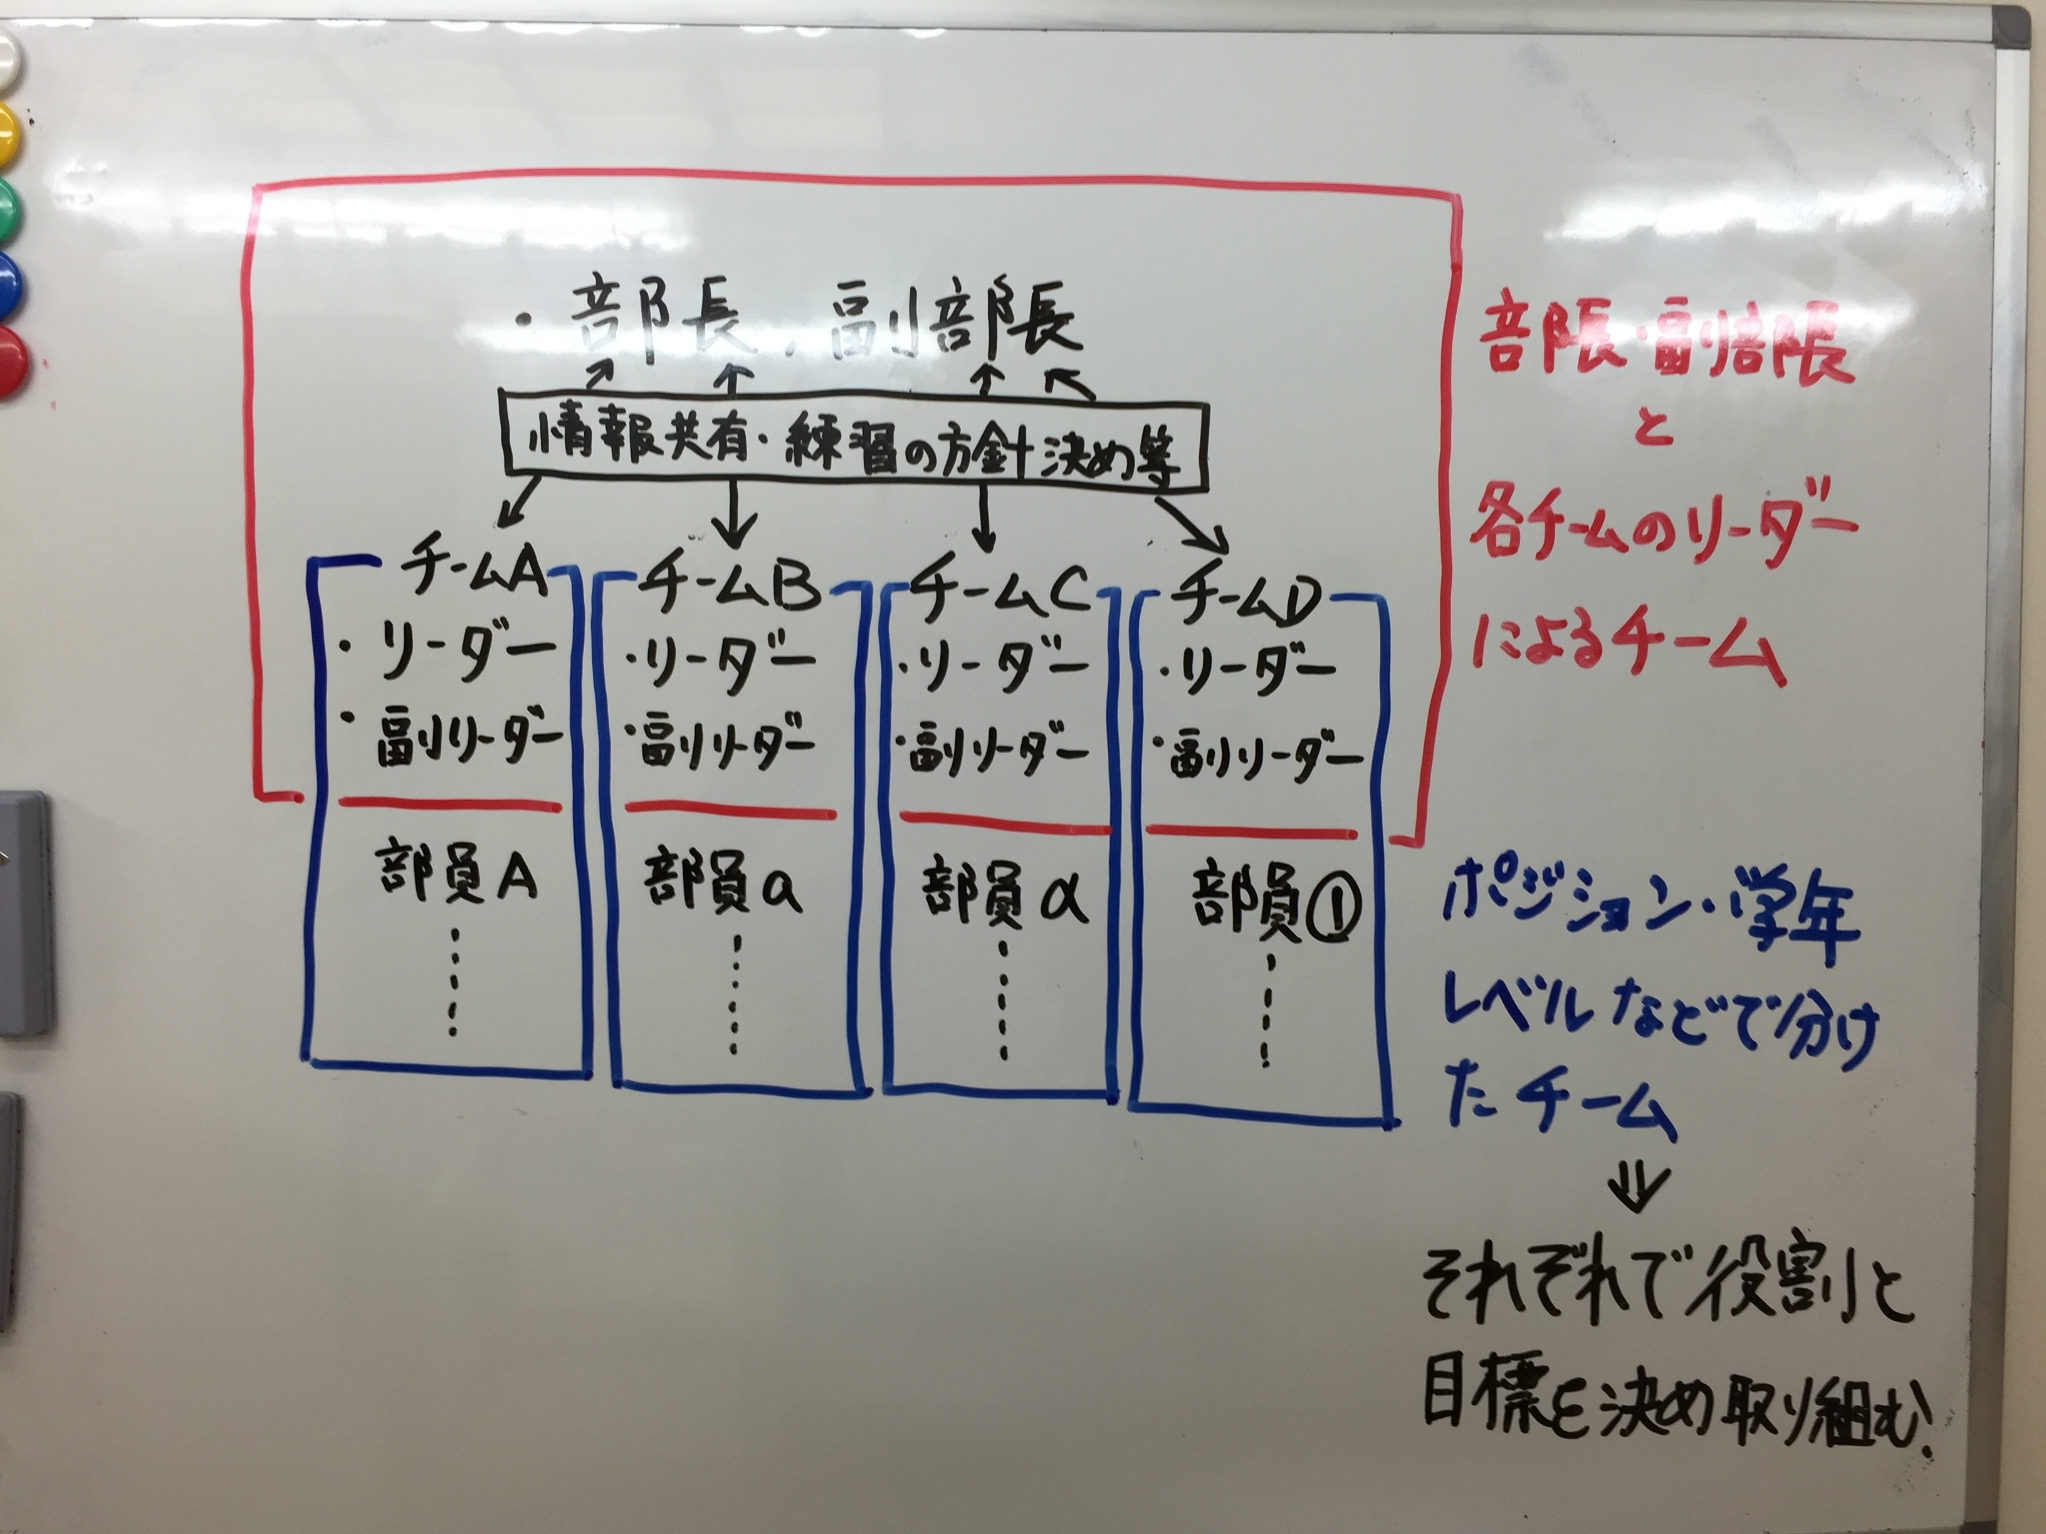 ・部長,副部長
情報共有・練習の方針決め等
チームA
・リーダー
・副リーダー
部員A
チームB
・リーダー
・副リーダー
部員a
チームC
・リーダー
・副リーダー
部員α
チームD
・リーダー
・副リーダー
部員①
部長・副部長
と
各チームのリーダー
によるチーム
ポジション・学年
レベルなどで分け
たチーム
⇓
それぞれで役割と
目標を決め取り組む.